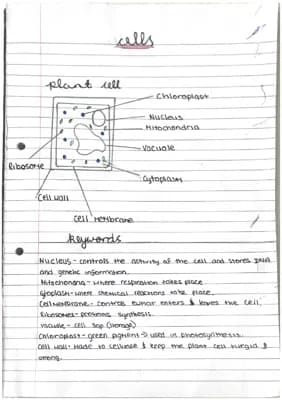 cells
plant cell
Chloroplast
Nucleus
Mitochondria
Vacuole
Ribosome
Cytoplasm
Cell wall
Cell membrane
keywords
Nucleus - controls the activity of the cell and stores DNA
and genetic information.
Mitochondria - where respiration takes place
Cytoplasm - where chemical reactions take place.
Cell Membrane - controls what enters & leaves the cell.
Ribosomes - proteins synthesis.
Vacuole - cell sap (storage)
Chloroplast - green pigment -> used in photosynthesis.
Cell wall - Made to cellulose & keep the plant cell turgid &
strong.